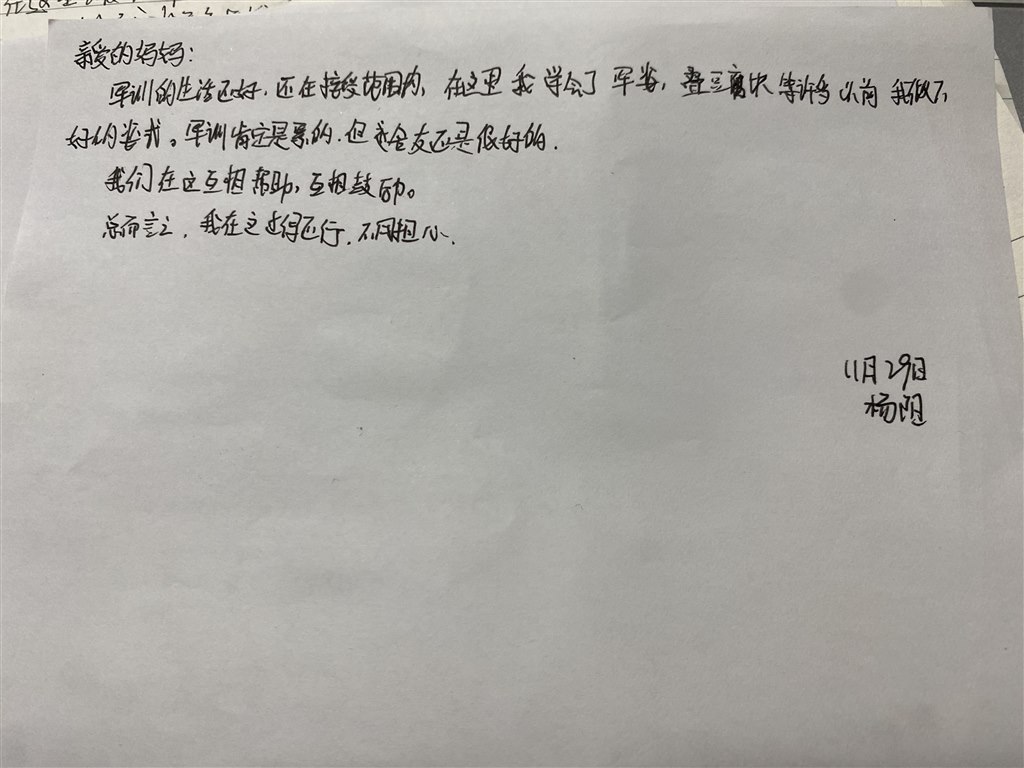 亲爱的妈妈:
军训的生活还好,还在接受范围内,在这里我学会了军姿,叠豆腐块等许多以前我做不
好的尝试。军训肯定是累的,但战友还是很好的.
我们在这互相帮助,互相鼓励。
总而言之,我在这过得还行,不用担心.
11月29日
杨阳